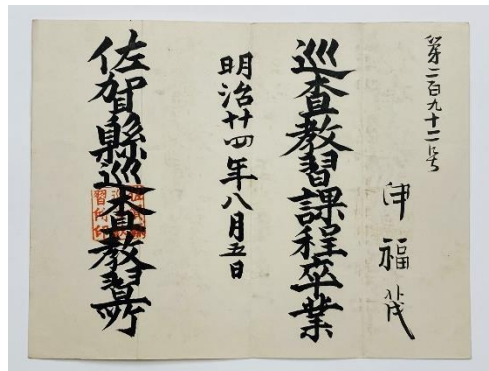 第二百九十二号
福
巡査教習課程卒業
明治廿四年八月五日
佐賀縣巡査教習所